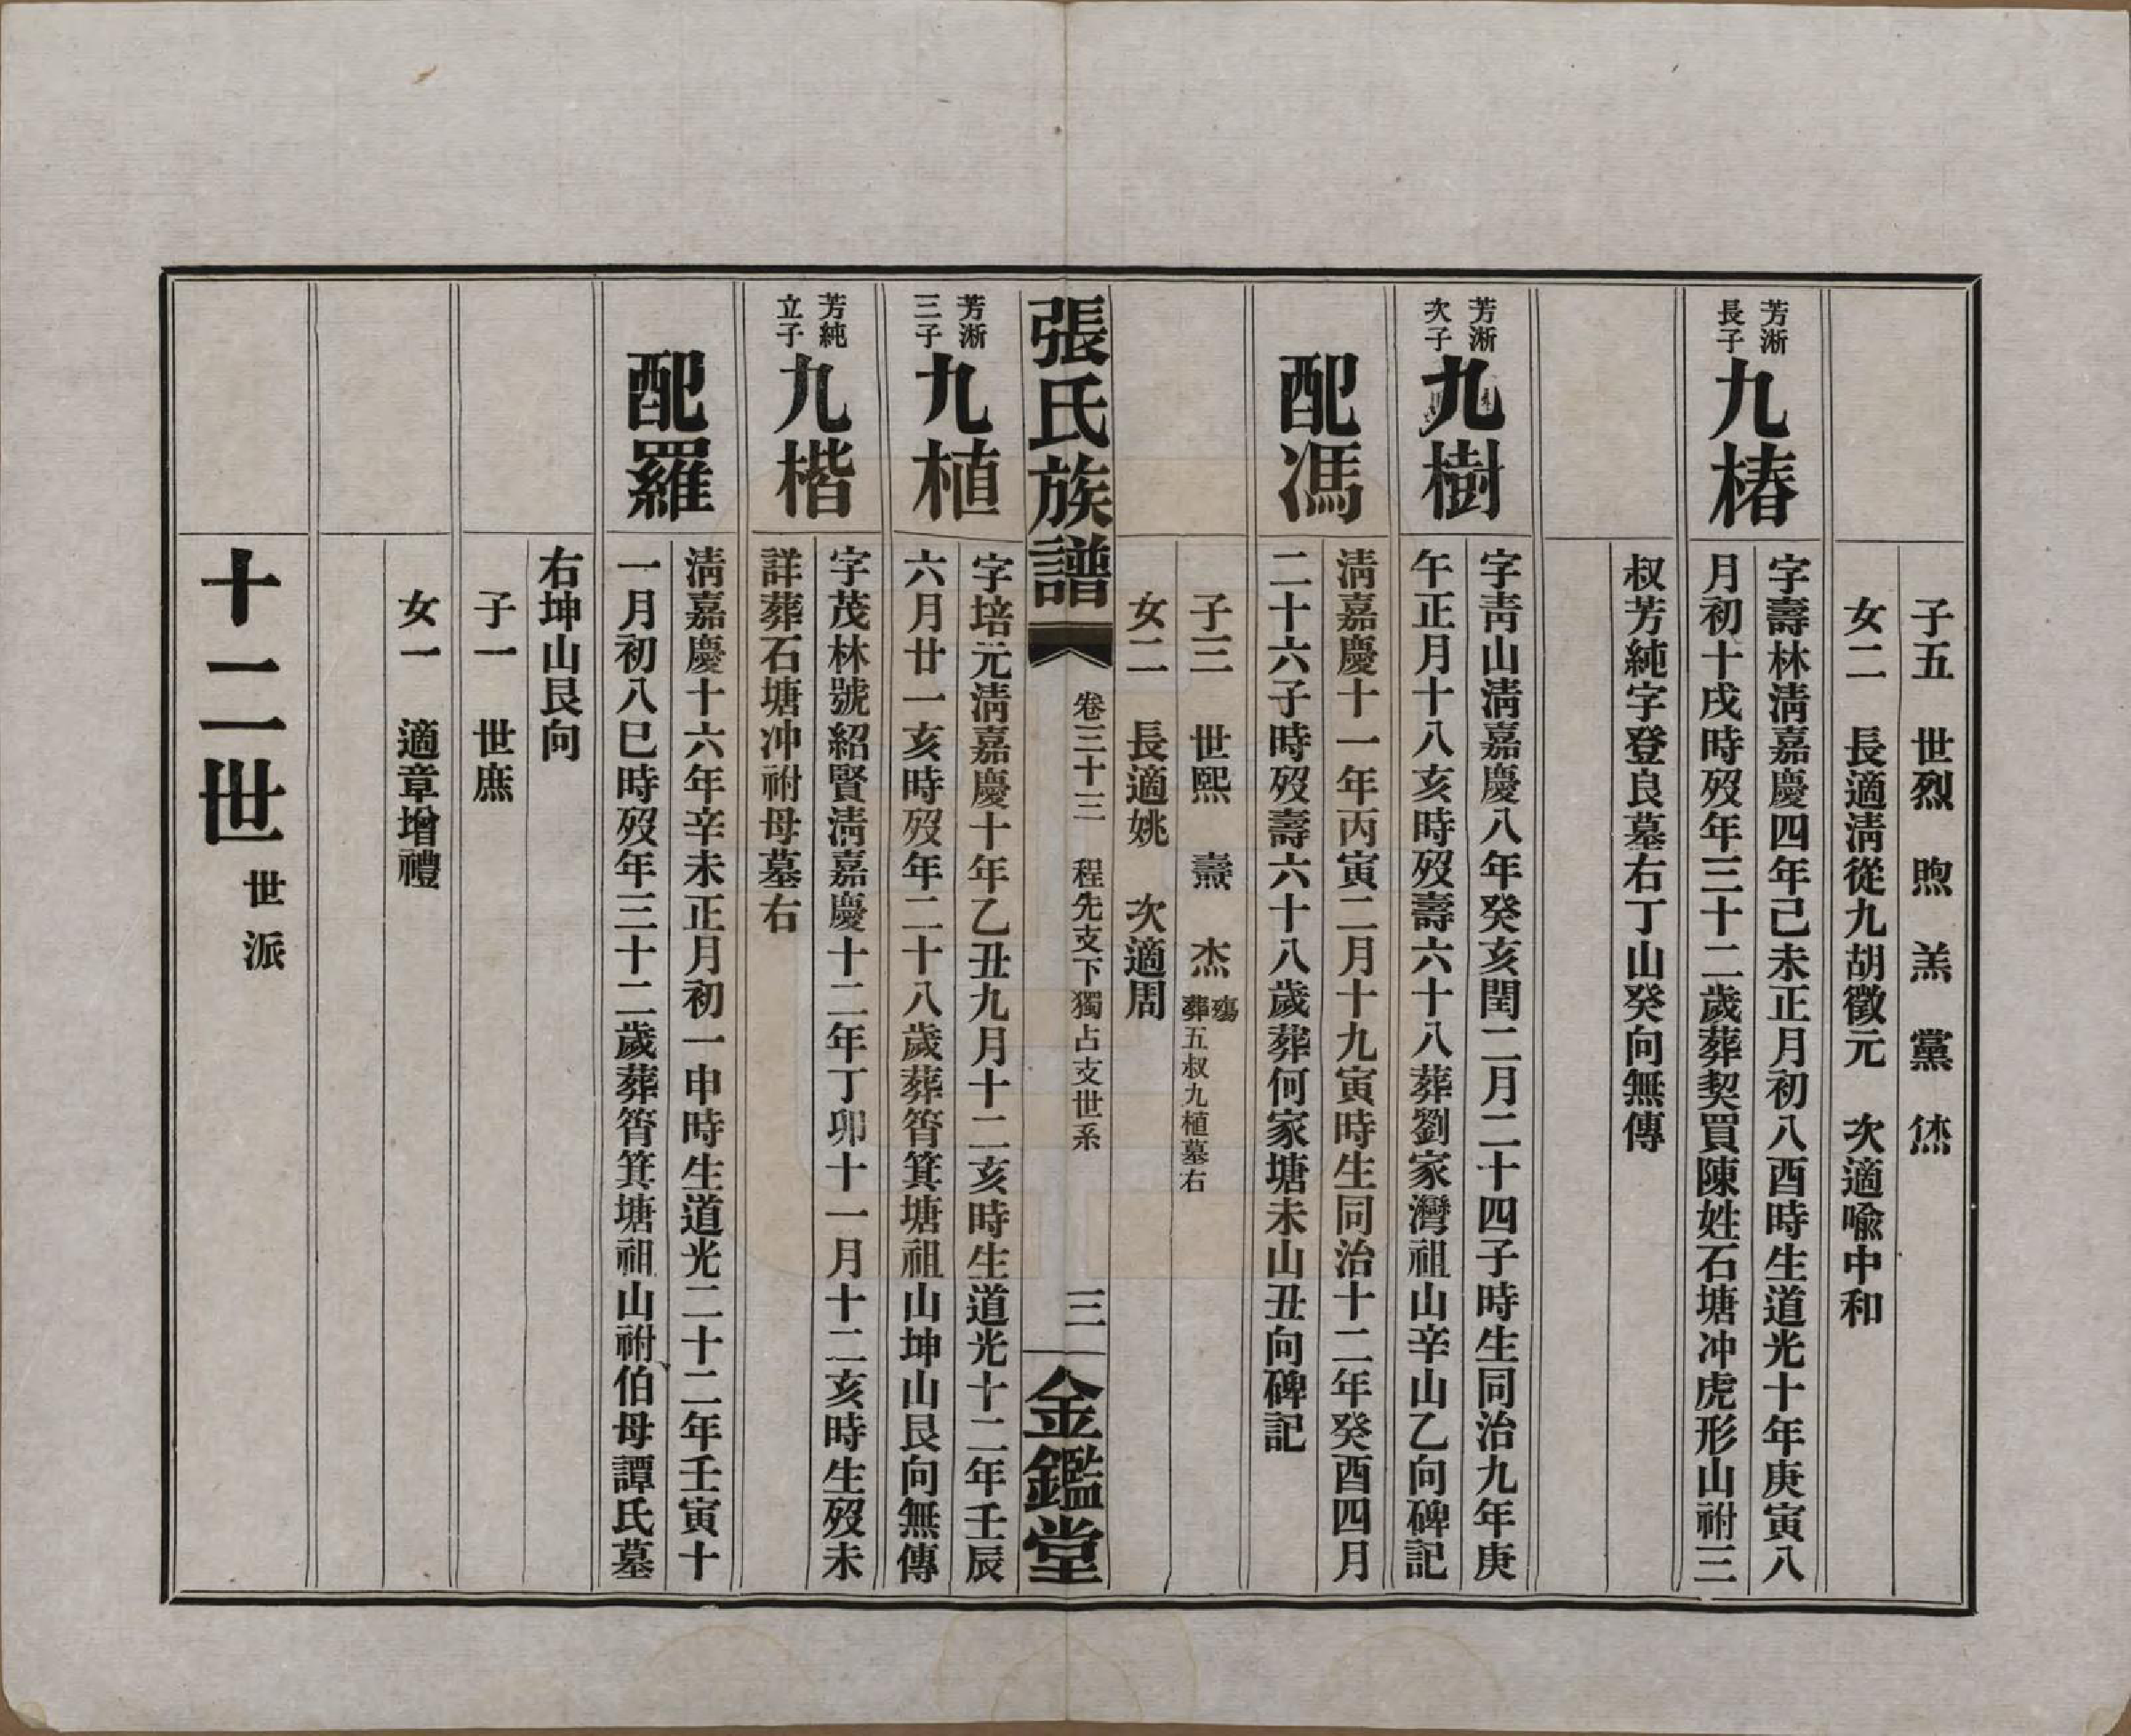 子五　世烈　煦　羔　黨　烋
女二　長適淸從九胡徵元　次適喩中和
芳淅
長子
九椿
字壽林淸嘉慶四年己未正月初八酉時生道光十年庚寅八
月初十戌時歿年三十二歲葬契買陳姓石塘冲虎形山祔三
叔芳純字登良墓右丁山癸向無傳
芳淅
次子
九樹
字靑山淸嘉慶八年癸亥閏二月二十四子時生同治九年庚
午正月十八亥時歿壽六十八葬劉家灣祖山辛山乙向碑記
配馮
淸嘉慶十一年丙寅二月十九寅時生同治十二年癸酉四月
二十六子時歿壽六十八歲葬何家塘未山丑向碑記
子三　世熙　燾　杰　殤
葬五叔九植墓右
女二　長適姚　次適周
張氏族譜
卷三十三　程先支下獨占支世系
三
金鑑堂
芳淅
三子
九植
字培元淸嘉慶十年乙丑九月十二亥時生道光十二年壬辰
六月廿一亥時歿年二十八歲葬筲箕塘祖山坤山艮向無傳
芳純
立子
九楷
字茂林號紹賢淸嘉慶十二年丁卯十一月十二亥時生歿未
詳葬石塘冲祔母墓右
配羅
淸嘉慶十六年辛未正月初一申時生道光二十二年壬寅十
一月初八巳時歿年三十二歲葬筲箕塘祖山祔伯母譚氏墓
右坤山艮向
子一　世庶
女一　適章增禮
十二世
世派